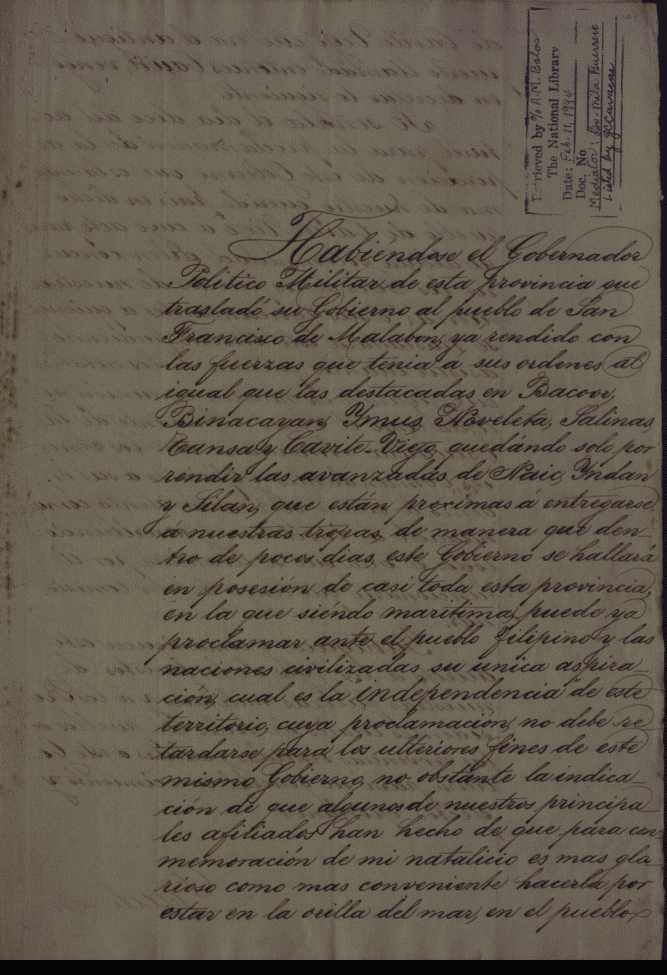 Retrieved by % A.M. Bolos
The National Library
Date: Feb. 11, 1994
Doc. No
Mediator:
Listed by
Habiendose el Gobernador
Politico Militar de esta provincia que
trasladó su Gobierno al pueblo de San
Francisco de Malabon, ya rendido con
las fuerzas que tenia á sus ordenes al
igual que las destacadas en Bacoor,
Binacayan, Ymus, Noveleta, Salinas
Tansa y Cavite-Viejo, quedándo solo por
rendir las avanzadas de Naic, Yndan
y Silan, que están proximas á entregarse
á nuestras tropas, de manera que den-
tro de pocos dias, este Gobierno se hallará
en posesión de casi toda esta provincia,
en la que siéndo maritima, puede ya
proclamar ante el pueblo filipino y las
naciones civilizadas su unica aspira-
ción, cual es la "independencia" de este
territorio, cuya proclamación, no debe re-
tardarse para los ulteriores fines de este
mismo Gobierno, no obstante la indica-
ción de que algunos de nuestros principa-
les afiliados han hecho de que para con-
memoración de mi natalicio es mas glo-
rioso como mas conveniente hacerla por
estar en la orilla del mar, en el pueblo